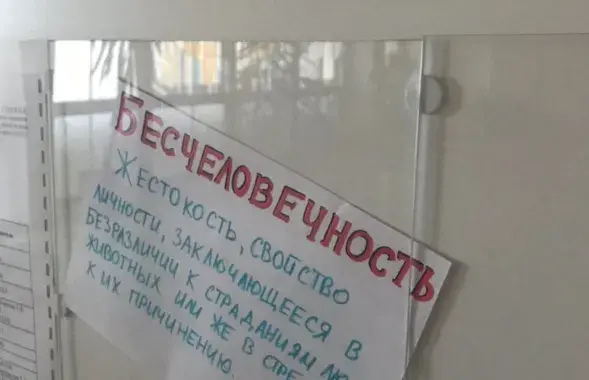 БЕСЧЕЛОВЕЧНОСТЬ
ЖЕСТОКОСТЬ, СВОЙСТВО
ЛИЧНОСТИ, ЗАКЛЮЧАЮЩЕЕСЯ В
БЕЗРАЗЛИЧИИ К СТРАДАНИЯМ
ЖИВОТНЫХ ИЛИ ЖЕ В
К ИХ ПРИЧИНЕНИЮ.